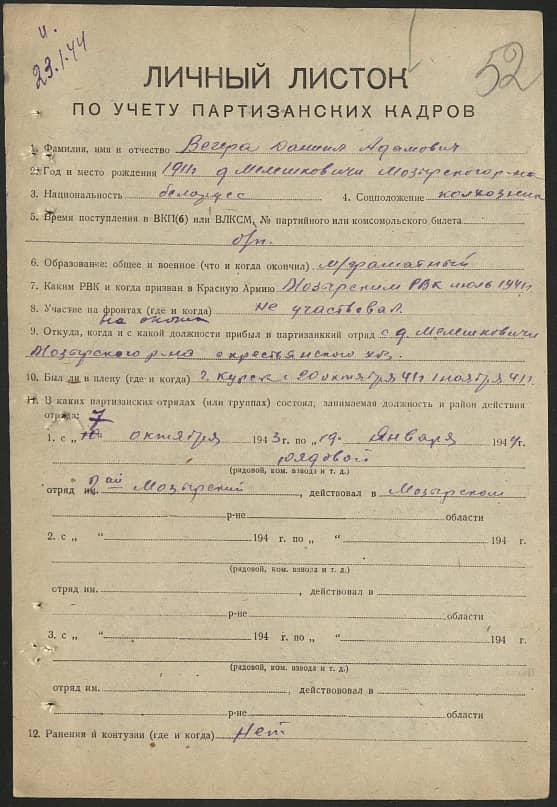 и.
23.1.44
52
ЛИЧНЫЙ ЛИСТОК
ПО УЧЕТУ ПАРТИЗАНСКИХ КАДРОВ
1. Фамилия, имя и отчество Вегера Даниил Адамович
2. Год и место рождения 1911г д Мелешковичи Мозырского р-на
3. Национальность белорусс 4. Соцположение колхозник
5. Время поступления в ВКП(б) или ВЛКСМ, № партийного или комсомольского билета
б/п.
6. Образование: общее и военное (что и когда окончил) м/грамотный
7. Каким РВК и когда призван в Красную Армию Мозырским РВК июль 1941г.
8. Участие на фронтах (где и когда) не участвовал.
на окопах
9. Откуда, когда и с какой должности прибыл в партизанкий отряд с д. Мелешковичи
Мозырского р-на с крестьянского хоз.
10. Был ли в плену (где и когда) г. Курск с 20 октября 41г 1 ноября 41г.
11. В каких партизанских отрядах (или группах) состоял, занимаемая должность и район действия
отряда:
1. с „ 7 октября 1943г. по „19. января 1944г.
рядовой
(рядовой, ком. взвода и т. д.)
отряд им. 2ой Мозырский, действовал в Мозырском
р-не области
2. с „ “ 194 г. по „ “ 194 г.
(рядовой, ком. взвода и т. д.)
отряд им. , действовал в
р-не области
3. с „ “ 194 г. по „ “ 194 г.
(рядовой, ком. взвода и т. д.)
отряд им. , действововал в
р-не области
12. Ранения и контузии (где и когда) Нет